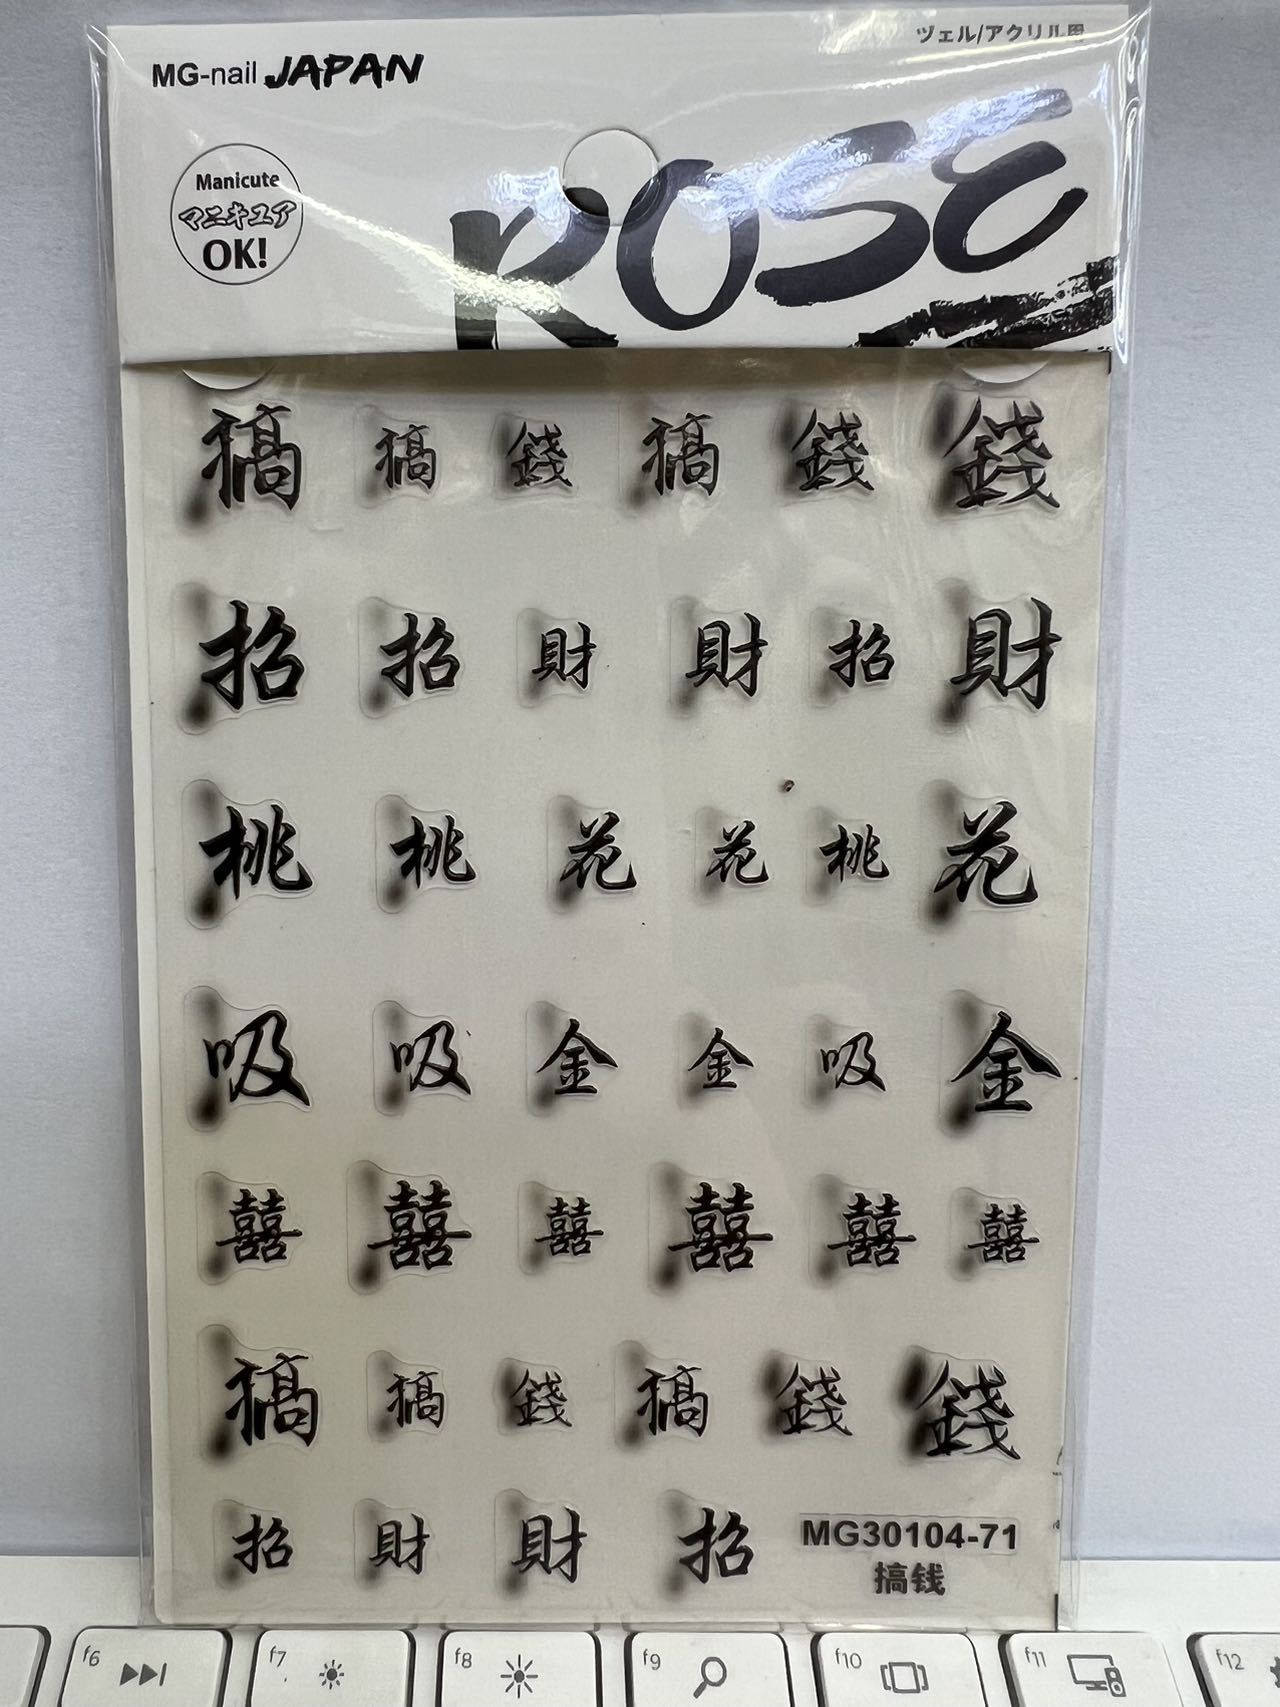 ヅェル/アクリル用
MG-nail JAPAN
ROSE
Manicute
マニキユア
OK!
搞 搞 錢 搞 錢 錢
招 招 財 財 招 財
桃 桃 花 花 桃 花
吸 吸 金 金 吸 金
囍 囍 囍 囍 囍 囍
搞 搞 錢 搞 錢 錢
招 財 財 招
MG30104-71
搞钱
f6 f7 f8 f9 f10 f11 f12